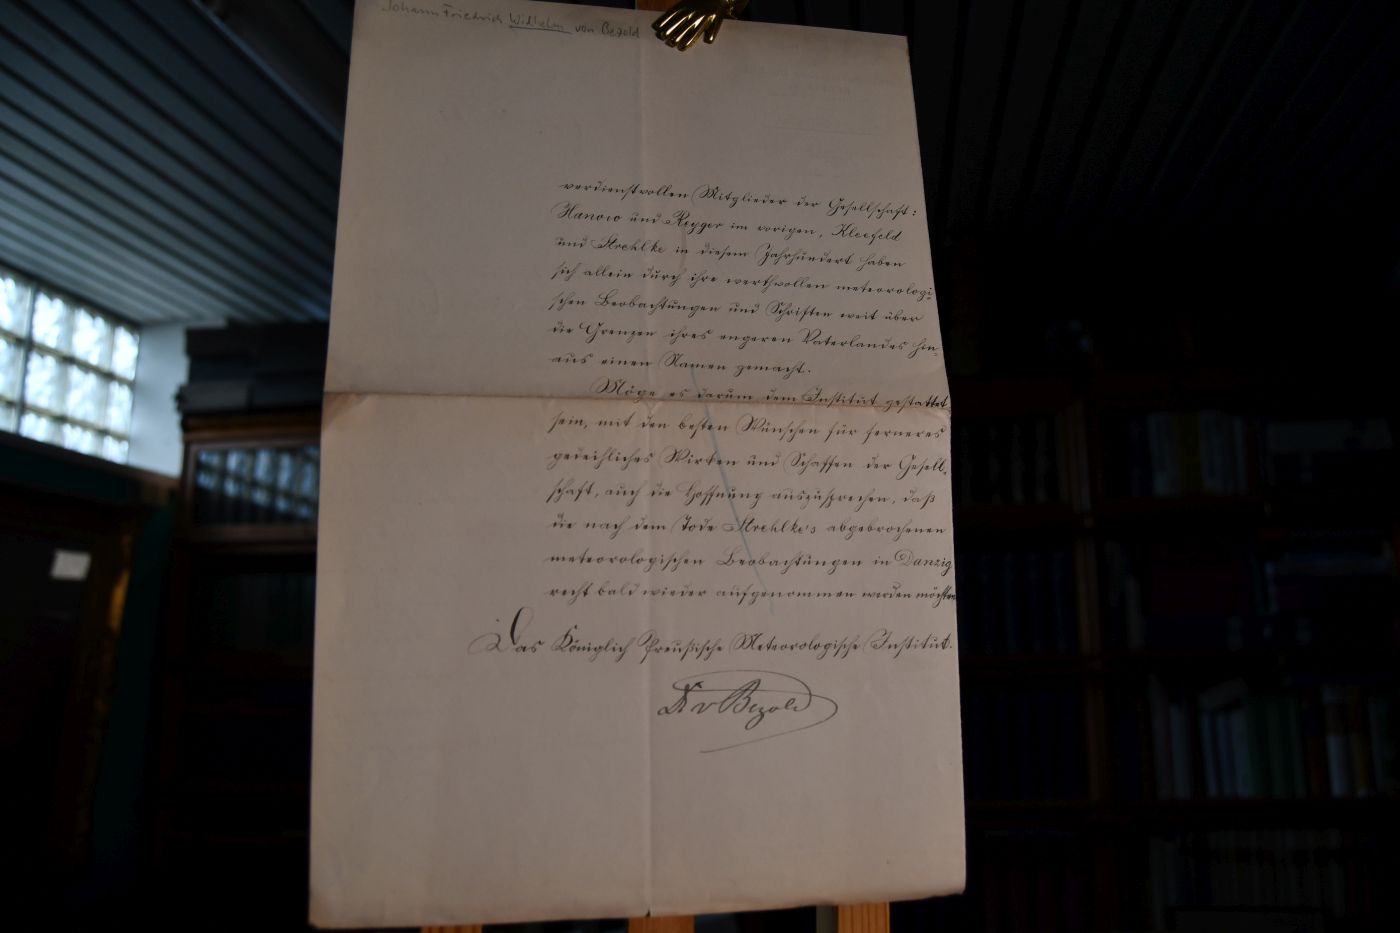 Johann Friedrich Wilhelm von Bezold
verdienstvollen Mitglieder der Gesellschaft:
Hanow und Reyger im vorigen, Kleefeld
und Strehlke in diesem Jahrhundert haben
sich allein durch ihre werthvollen meteorologi-
schen Beobachtungen und Schriften weit über
die Grenzen ihres engeren Vaterlandes hin-
aus einen Namen gemacht.
Möge es darum dem Institut gestattet
sein, mit den besten Wünschen für ferneres
gedeihliches Wirken und Schaffen der Gesell-
schaft, auch die Hoffnung auszusprechen, daß
die nach dem Tode Strehlke's abgebrochenen
meteorologischen Beobachtungen in Danzig
recht bald wieder aufgenommen werden möchten.
Das Königlich Preußische Meteorologische Institut.
Dr v Bezold